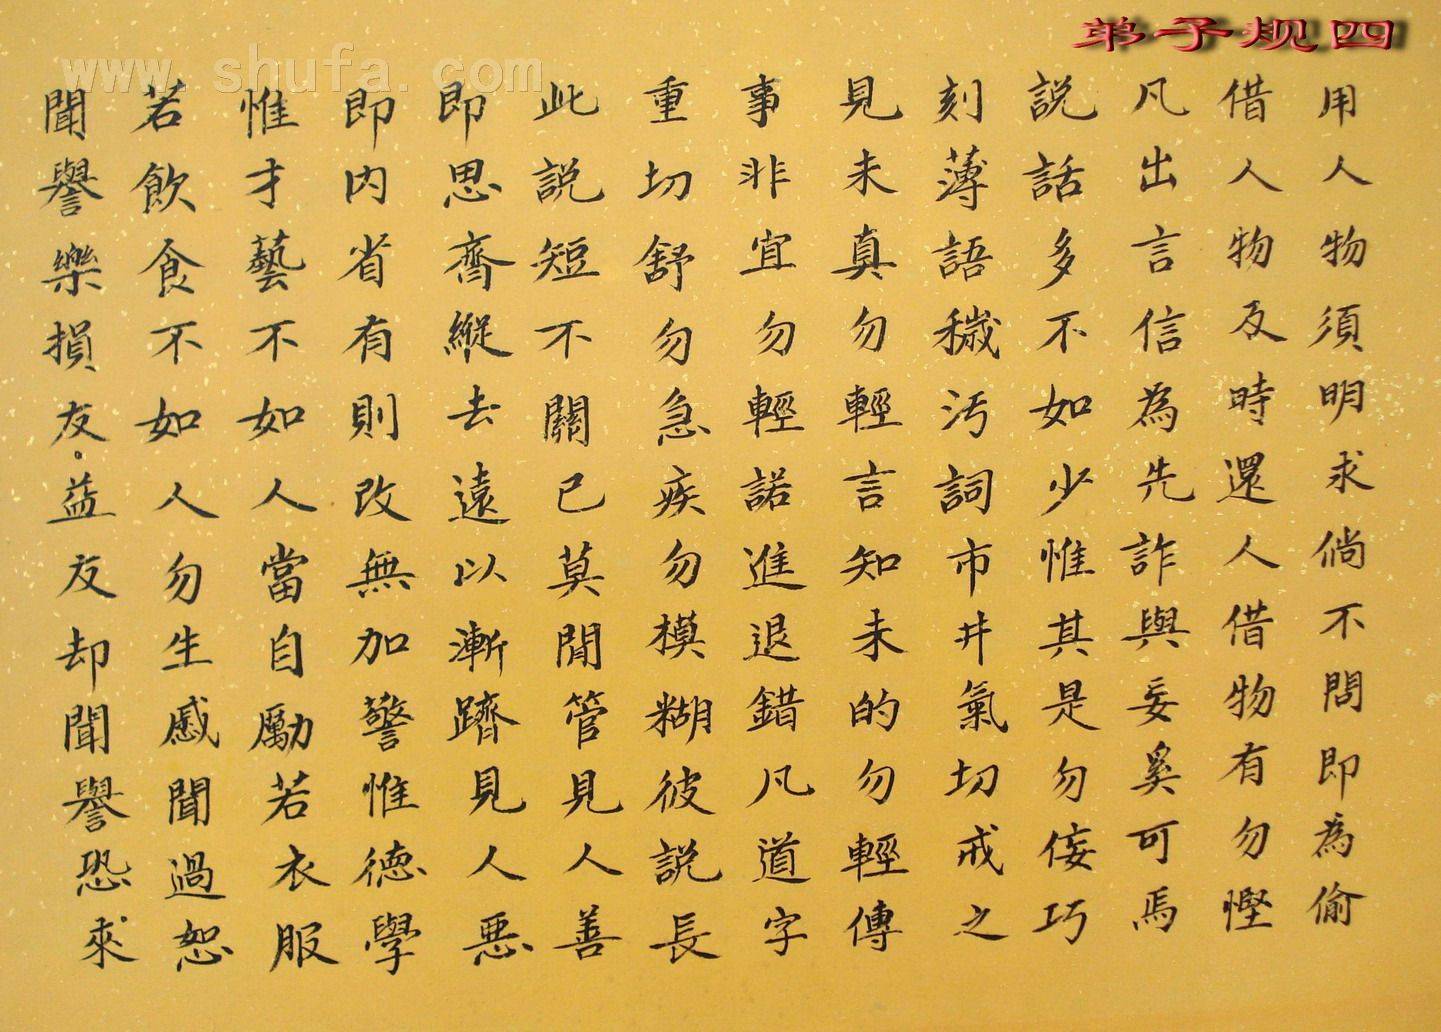 弟子规四
www.shufa.com
用人物須明求倘不問即為偷
借人物及時還人借物有勿慳
凡出言信為先詐與妄奚可焉
說話多不如少惟其是勿佞巧
刻薄語穢汚詞市井氣切戒之
見未真勿輕言知未的勿輕傳
事非宜勿輕諾進退錯凡道字
重切舒勿急疾勿模糊彼説長
此説短不關己莫閒管見人善
即思齊縱去遠以漸躋見人惡
即內省有則改無加警惟德學
惟才藝不如人當自勵若衣服
若飲食不如人勿生慼聞過恕
聞譽樂損友。益友却聞譽恐來